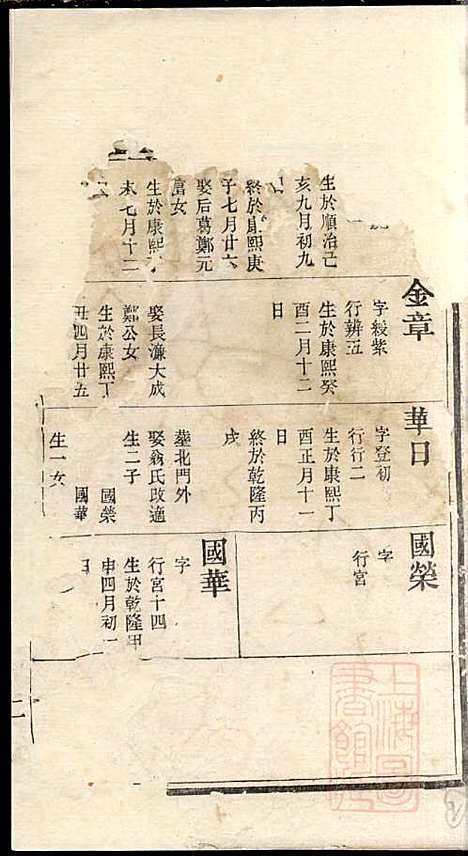 生於順治己
亥九月初九
終於康熙庚
子七月廿六
娶后葛鄭元
富女
生於康熙
未七月十二
金章
字綬紫
行辨五
生於康熙癸
酉二月十二
日
娶長濂大成
鄭公女
生於康熙丁
丑四月廿五
華日
字登初
行行二
生於康熙丁
酉正月十一
日
終於乾隆丙
戌
塟北門外
娶翁氏改適
生二子
國榮
國華
生一女
國榮
字
行宮
國華
字
行宮十四
生於乾隆甲
申四月初一
日
二
上海圖書館藏